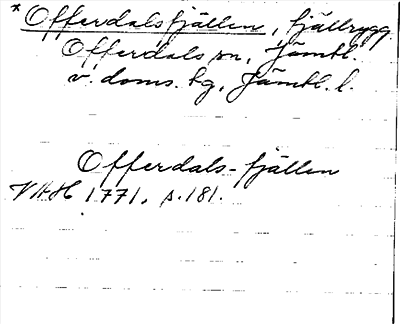 * Offerdalsfjällen, fjällrygg
Offerdals sn, Jämtl.
v. doms. hg, Jämtl. l.
Offerdals-fjällen
VAH 1771, s. 181.